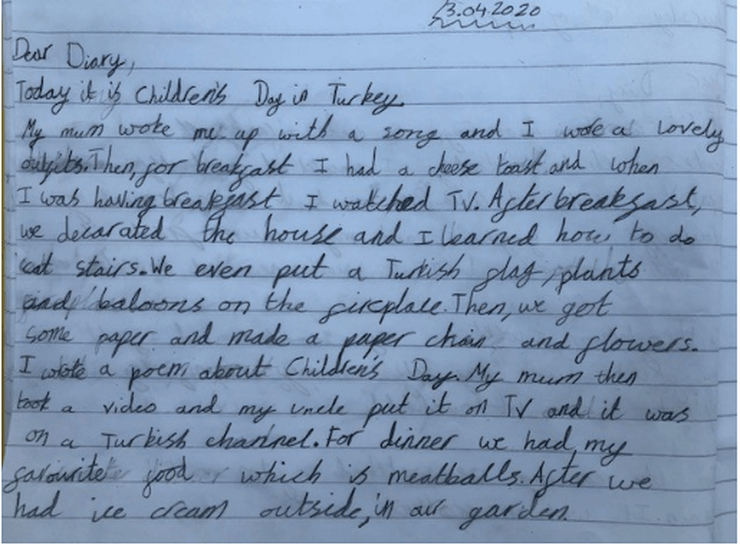 13.04.2020
Dear Diary,
Today it is Children's Day in Turkey.
My mum woke me up with a song and I wore a lovely
outfits. Then, for breakfast I had a cheese toast and when
I was having breakfast I watched TV. After breakfast,
we decarated the house and I learned how to do
cat stairs. We even put a Turkish flag, plants
and baloons on the fireplace. Then, we got
some paper and made a paper chain and flowers.
I wrote a poem about Children's Day. My mum then
took a video and my uncle put it on TV and it was
on a Turkish channel. For dinner we had my
favourite food which is meatballs. After we
had ice cream outside, in our garden.